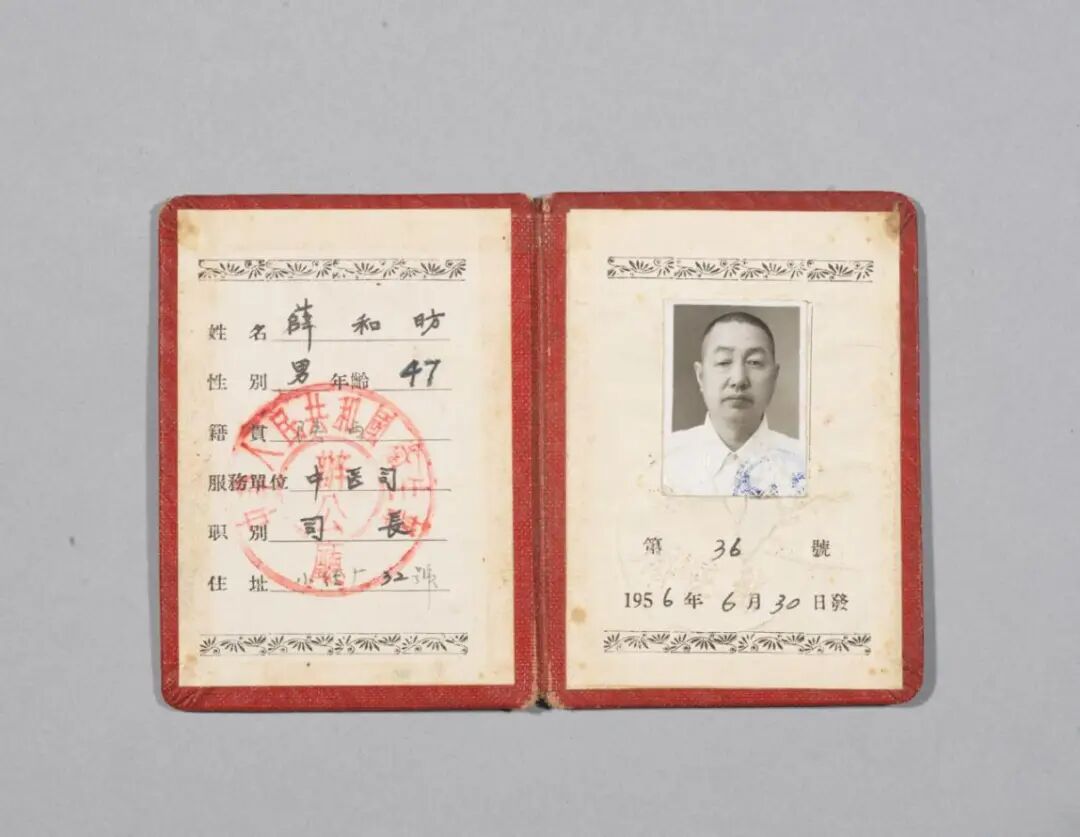 姓名 薛和昉
性別 男 年齡 47
籍貫
服務單位 中医司
职別 司長
住址 小 32號
人民共和國
辦公廳
第 36 號
1956年6月30日發